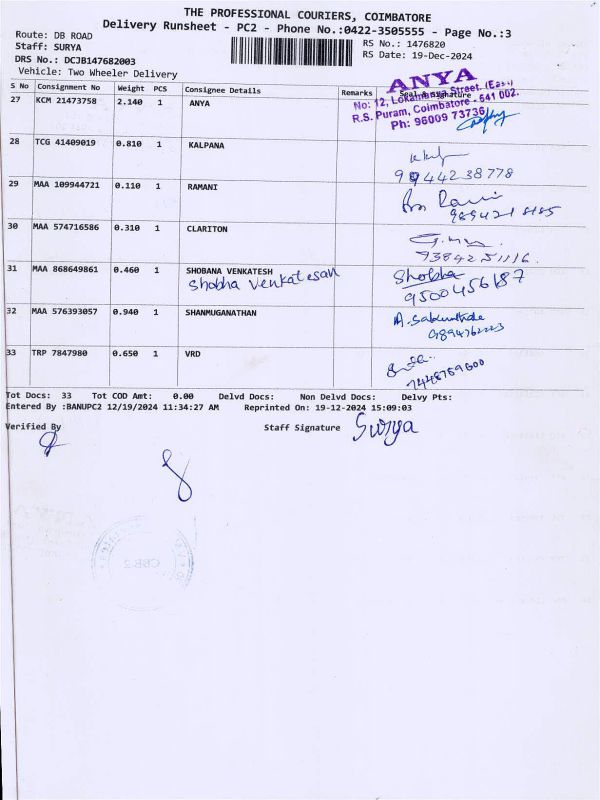 THE PROFESSIONAL COURIERS, COIMBATORE
Delivery Runsheet - PC2 - Phone No.:0422-3505555 - Page No.:3
Route: DB ROAD
RS No.: 1476820
Staff: SURYA
RS Date: 19-Dec-2024
DRS No.: DCJB147682003
Vehicle: Two Wheeler Delivery
S No Consignment No Weight PCS Consignee Details Remarks Seal & Signature
ANYA
No: 12, Lokamanya Street, (East)
R.S. Puram, Coimbatore - 641 002.
Ph: 96009 73736
27 KCM 21473758 2.140 1 ANYA
28 TCG 41409019 0.810 1 KALPANA
9944238778
29 MAA 109944721 0.110 1 RAMANI
30 MAA 574716586 0.310 1 CLARITON
9384251116
31 MAA 868649861 0.460 1 SHOBANA VENKATESH
Shobha Venkatesan
Shobha
9500456187
32 MAA 576393057 0.940 1 SHANMUGANATHAN
33 TRP 7847980 0.650 1 VRD
7448789600
Tot Docs: 33 Tot COD Amt: 0.00 Delvd Docs: Non Delvd Docs: Delvy Pts:
Entered By :BANUPC2 12/19/2024 11:34:27 AM Reprinted On: 19-12-2024 15:09:03
Verified By Staff Signature Surya